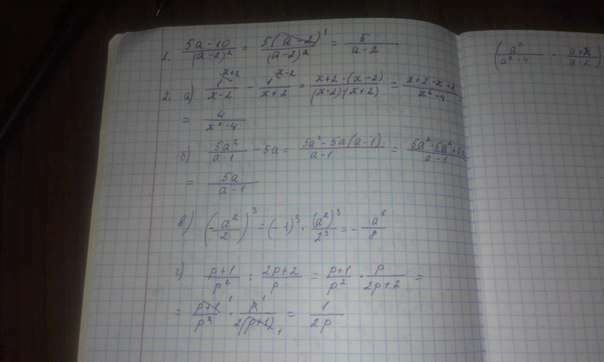 1. (5a-10)/(a-2)² = 5(a-2)¹/(a-2)² = 5/(a-2)
2. а) 1^(x+2)/(x-2) - 1^(x-2)/(x+2) = (x+2-(x-2))/((x-2)(x+2)) = (x+2-x+2)/(x²-4)
= 4/(x²-4)
б) 5a²/(a-1) - 5a = (5a²-5a(a-1))/(a-1) = (5a²-5a²+5a)/(a-1)
= 5a/(a-1)
в) (-a²/2)³ = (-1)³ · (a²)³/2³ = -a⁶/8
г) (p+1)/p² : (2p+2)/p = (p+1)/p² · p/(2p+2) =
= (p+1)¹/p² · p¹/(2(p+1)₁) = 1/(2p)